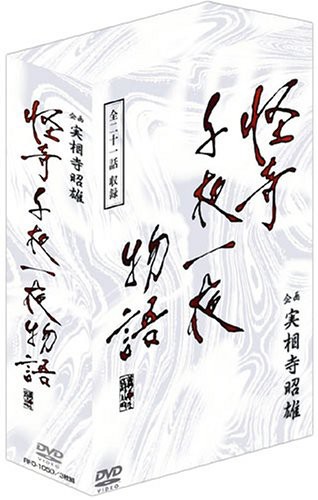 企画 実相寺昭雄
怪奇千夜一夜物語
DVD
VIDEO
怪奇
千夜一夜
物語
全二十一話 収録
企画 実相寺昭雄
DVD
VIDEO